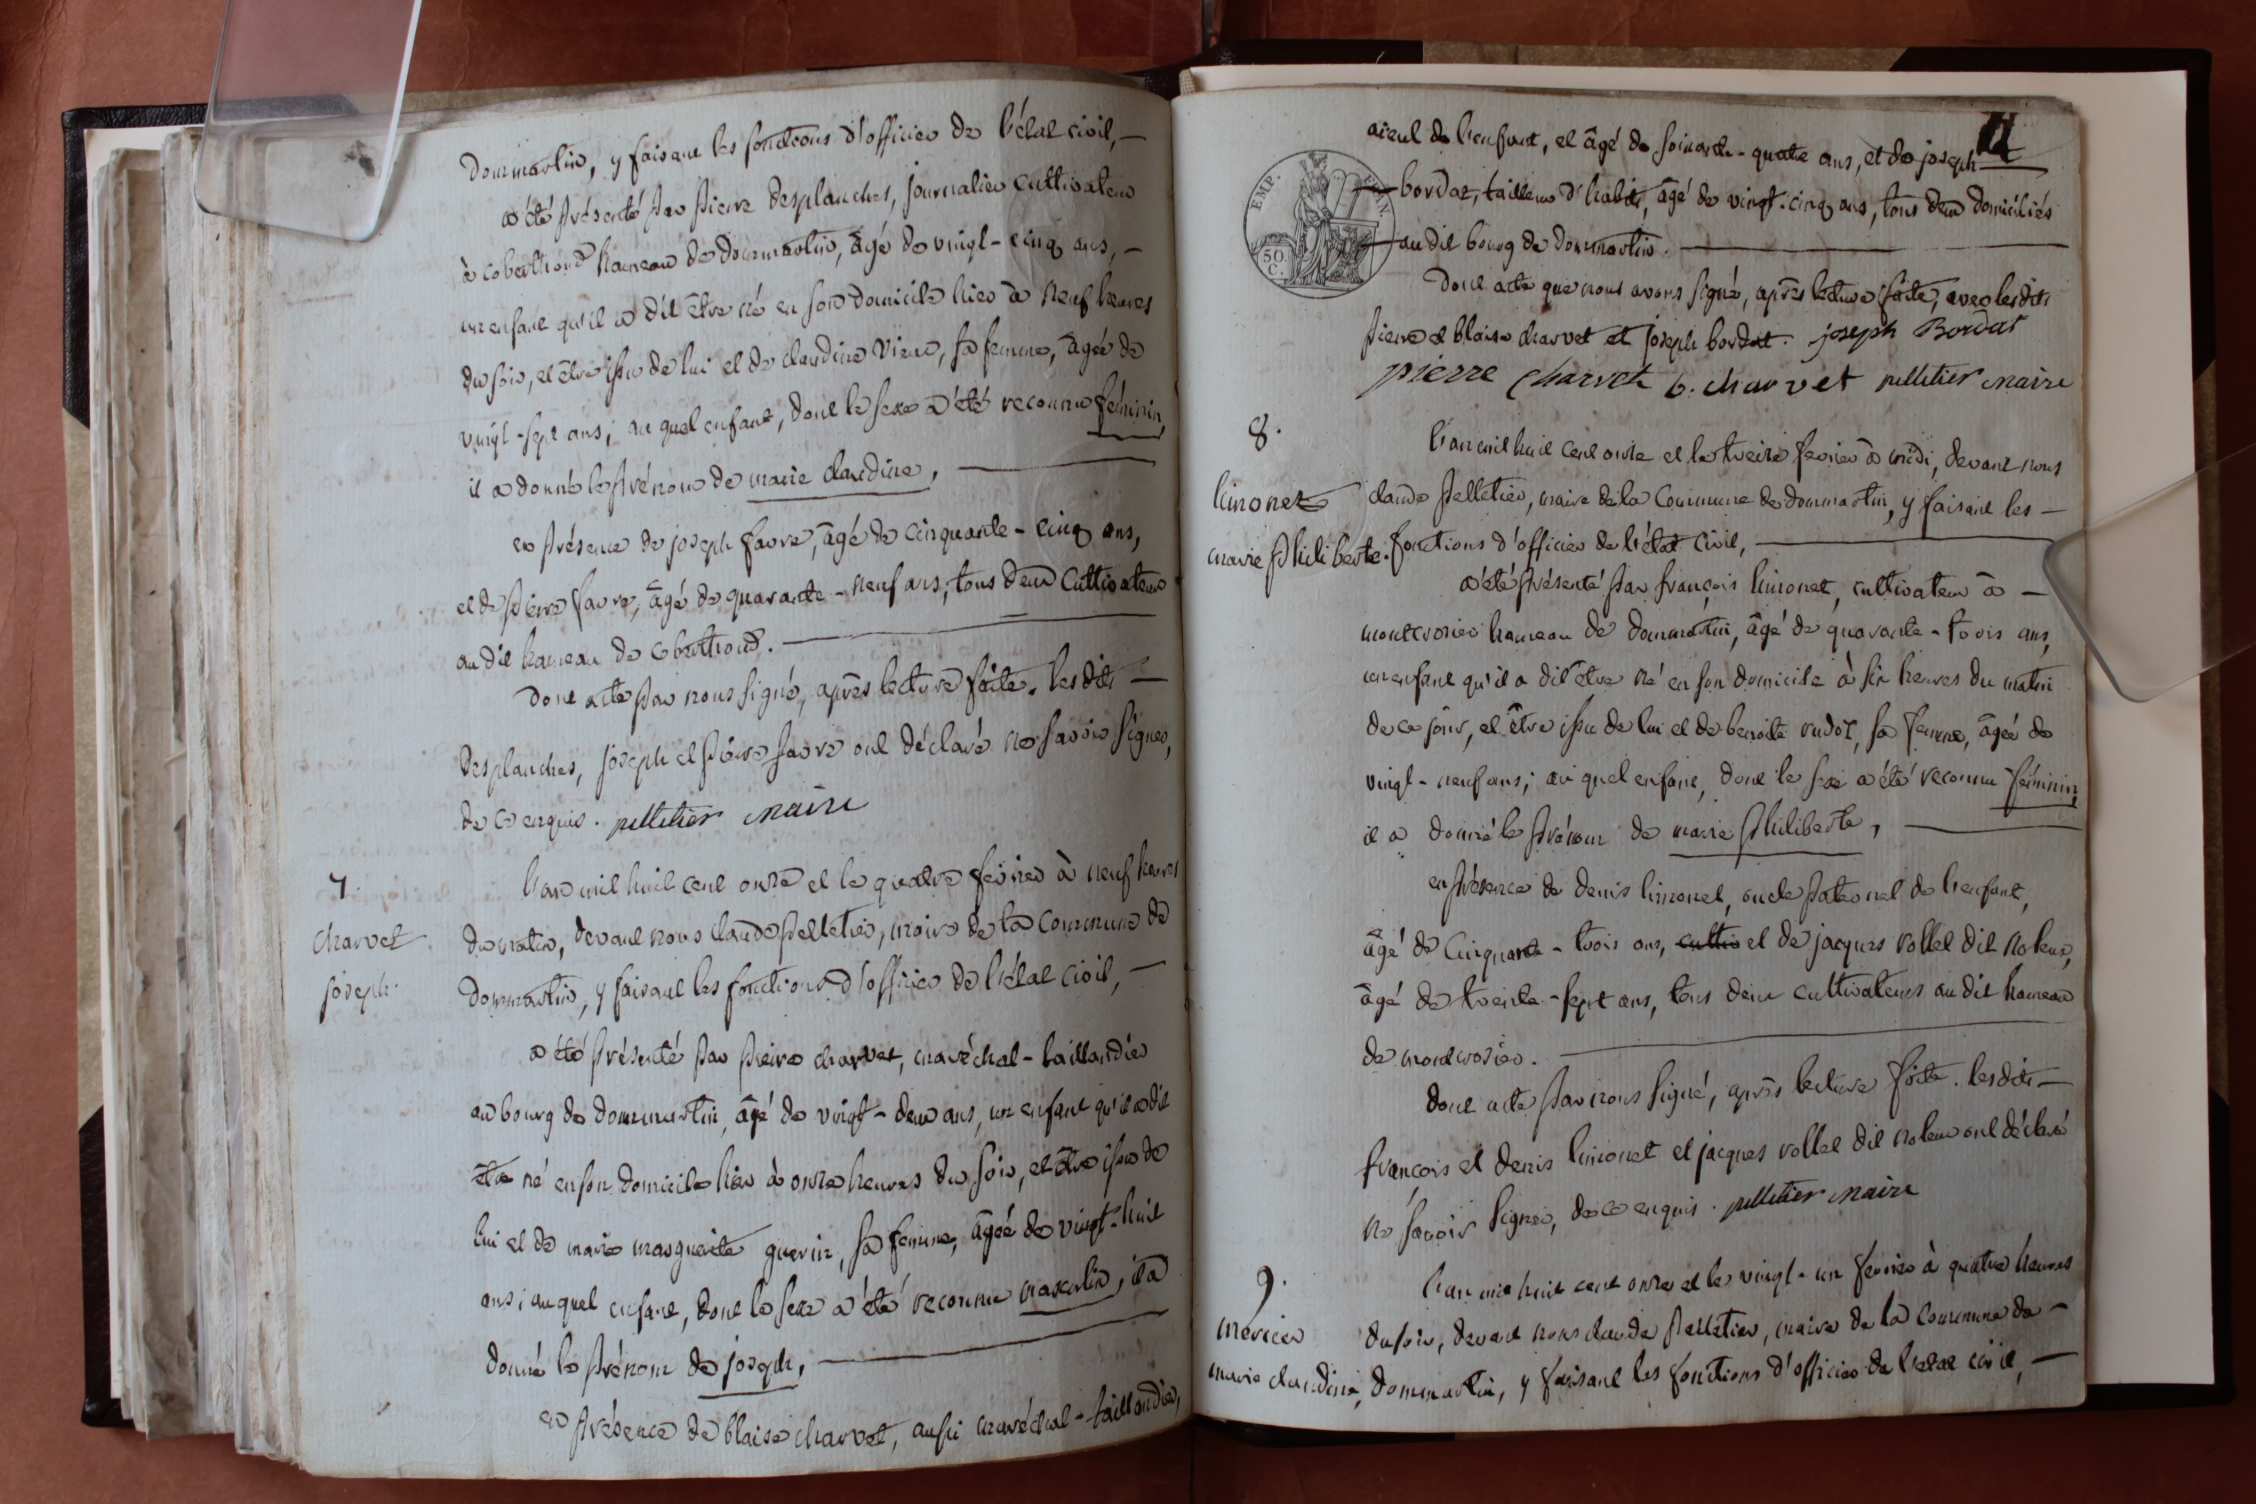 dommartin, y faisant les fonctions d'officier de l'état civil,
a été présenté par pierre desplanches, journalier cultivateur
à cobertiond hameau de dommartin, âgé de vingt-cinq ans,
un enfant qu'il a dit être né en son domicile hier à neuf heures
du soir, et être issu de lui et de claudine vieux, sa femme, âgée de
vingt-sept ans; au quel enfant, dont le sexe a été reconnu féminin,
il a donné le prénom de marie claudine,
en présence de joseph favre, âgé de cinquante-cinq ans,
et de pierre favre, âgé de quarante-neuf ans, tous deux cultivateurs
au dit hameau de cobertiond.
dont acte par nous signé, après lecture faite. les dits
desplanches, joseph et pierre favre ont déclaré ne savoir signer,
de ce enquis. pelletier maire
7.
charvet
joseph.
l'an mil huit cent onze et le quatre février à neuf heures
du matin, devant nous claude pelletier, maire de la commune de
dommartin, y faisant les fonctions d'officier de l'état civil,
a été présenté par pierre charvet, maréchal-taillandier
au bourg de dommartin, âgé de vingt-deux ans, un enfant qu'il a dit
être né en son domicile hier à onze heures du soir, et être issu de
lui et de marie marguerite guerin, sa femme, âgée de vingt-huit
ans; au quel enfant, dont le sexe a été reconnu masculin, il a
donné le prénom de joseph,
en présence de blaise charvet, aussi maréchal-taillandier,
11
EMP. FRAN.
50. C.
aieul de l'enfant, et âgé de soixante-quatre ans, et de joseph
bordat, tailleur d'habits, âgé de vingt-cinq ans, tous deux domiciliés
au dit bourg de dommartin.
dont acte que nous avons signé, après lecture faite, avec les dits
pierre et blaise charvet et joseph bordat. joseph Bordat
pierre charvet b. charvet pelletier maire
8.
limonet
marie philiberte.
l'an mil huit cent onze et le treize février à midi, devant nous
claude pelletier, maire de la commune de dommartin, y faisant les
fonctions d'officier de l'état civil,
a été présenté par françois limonet, cultivateur à
montcrosier hameau de dommartin, âgé de quarante-trois ans,
un enfant qu'il a dit être né en son domicile à six heures du matin
de ce jour, et être issu de lui et de benoite rudot, sa femme, âgée de
vingt-neuf ans; au quel enfant, dont le sexe a été reconnu féminin,
il a donné le prénom de marie philiberte,
en présence de denis limonet, oncle paternel de l'enfant,
âgé de cinquante-trois ans, cultiv et de jacques vollet dit noleur,
âgé de trente-sept ans, tous deux cultivateurs au dit hameau
de montcrosier.
dont acte par nous signé, après lecture faite. les dits
françois et denis limonet et jacques vollet dit noleur ont déclaré
ne savoir signer, de ce enquis. pelletier maire
9.
mercier
marie claudine,
l'an mil huit cent onze et le vingt-un février à quatre heures
du soir, devant nous claude pelletier, maire de la commune de
dommartin, y faisant les fonctions d'officier de l'état civil,